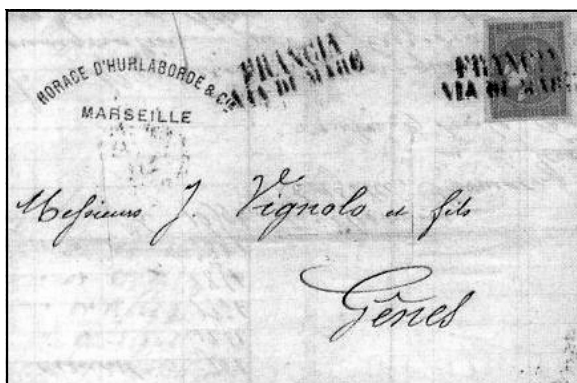 HORACE D'HURLABORDE & CIE
MARSEILLE
FRANCIA
VIA DI MARE
FRANCIA
VIA DI MARE
Messieurs J. Vignolo et fils
Gênes